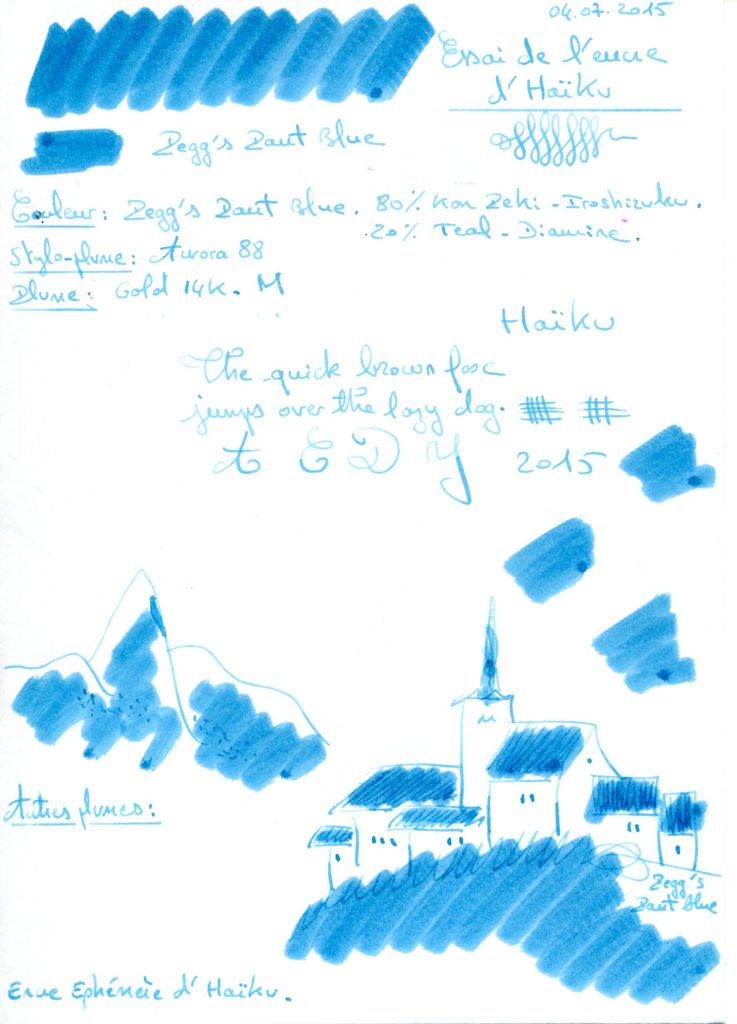 04.07.2015
Essai de l'encre
d'Haïku
Pegg's Paut Blue
Couleur: Pegg's Paut Blue. 80% Kon Peki - Iroshizuku.
20% Teal - Diamine.
Stylo-plume: Aurora 88
Plume: Gold 14K. M
Haïku
The quick brown fox
jumps over the lazy dog.
A E D Y 2015
Autres plumes:
Pegg's
Paut Blue
d'Haïku.